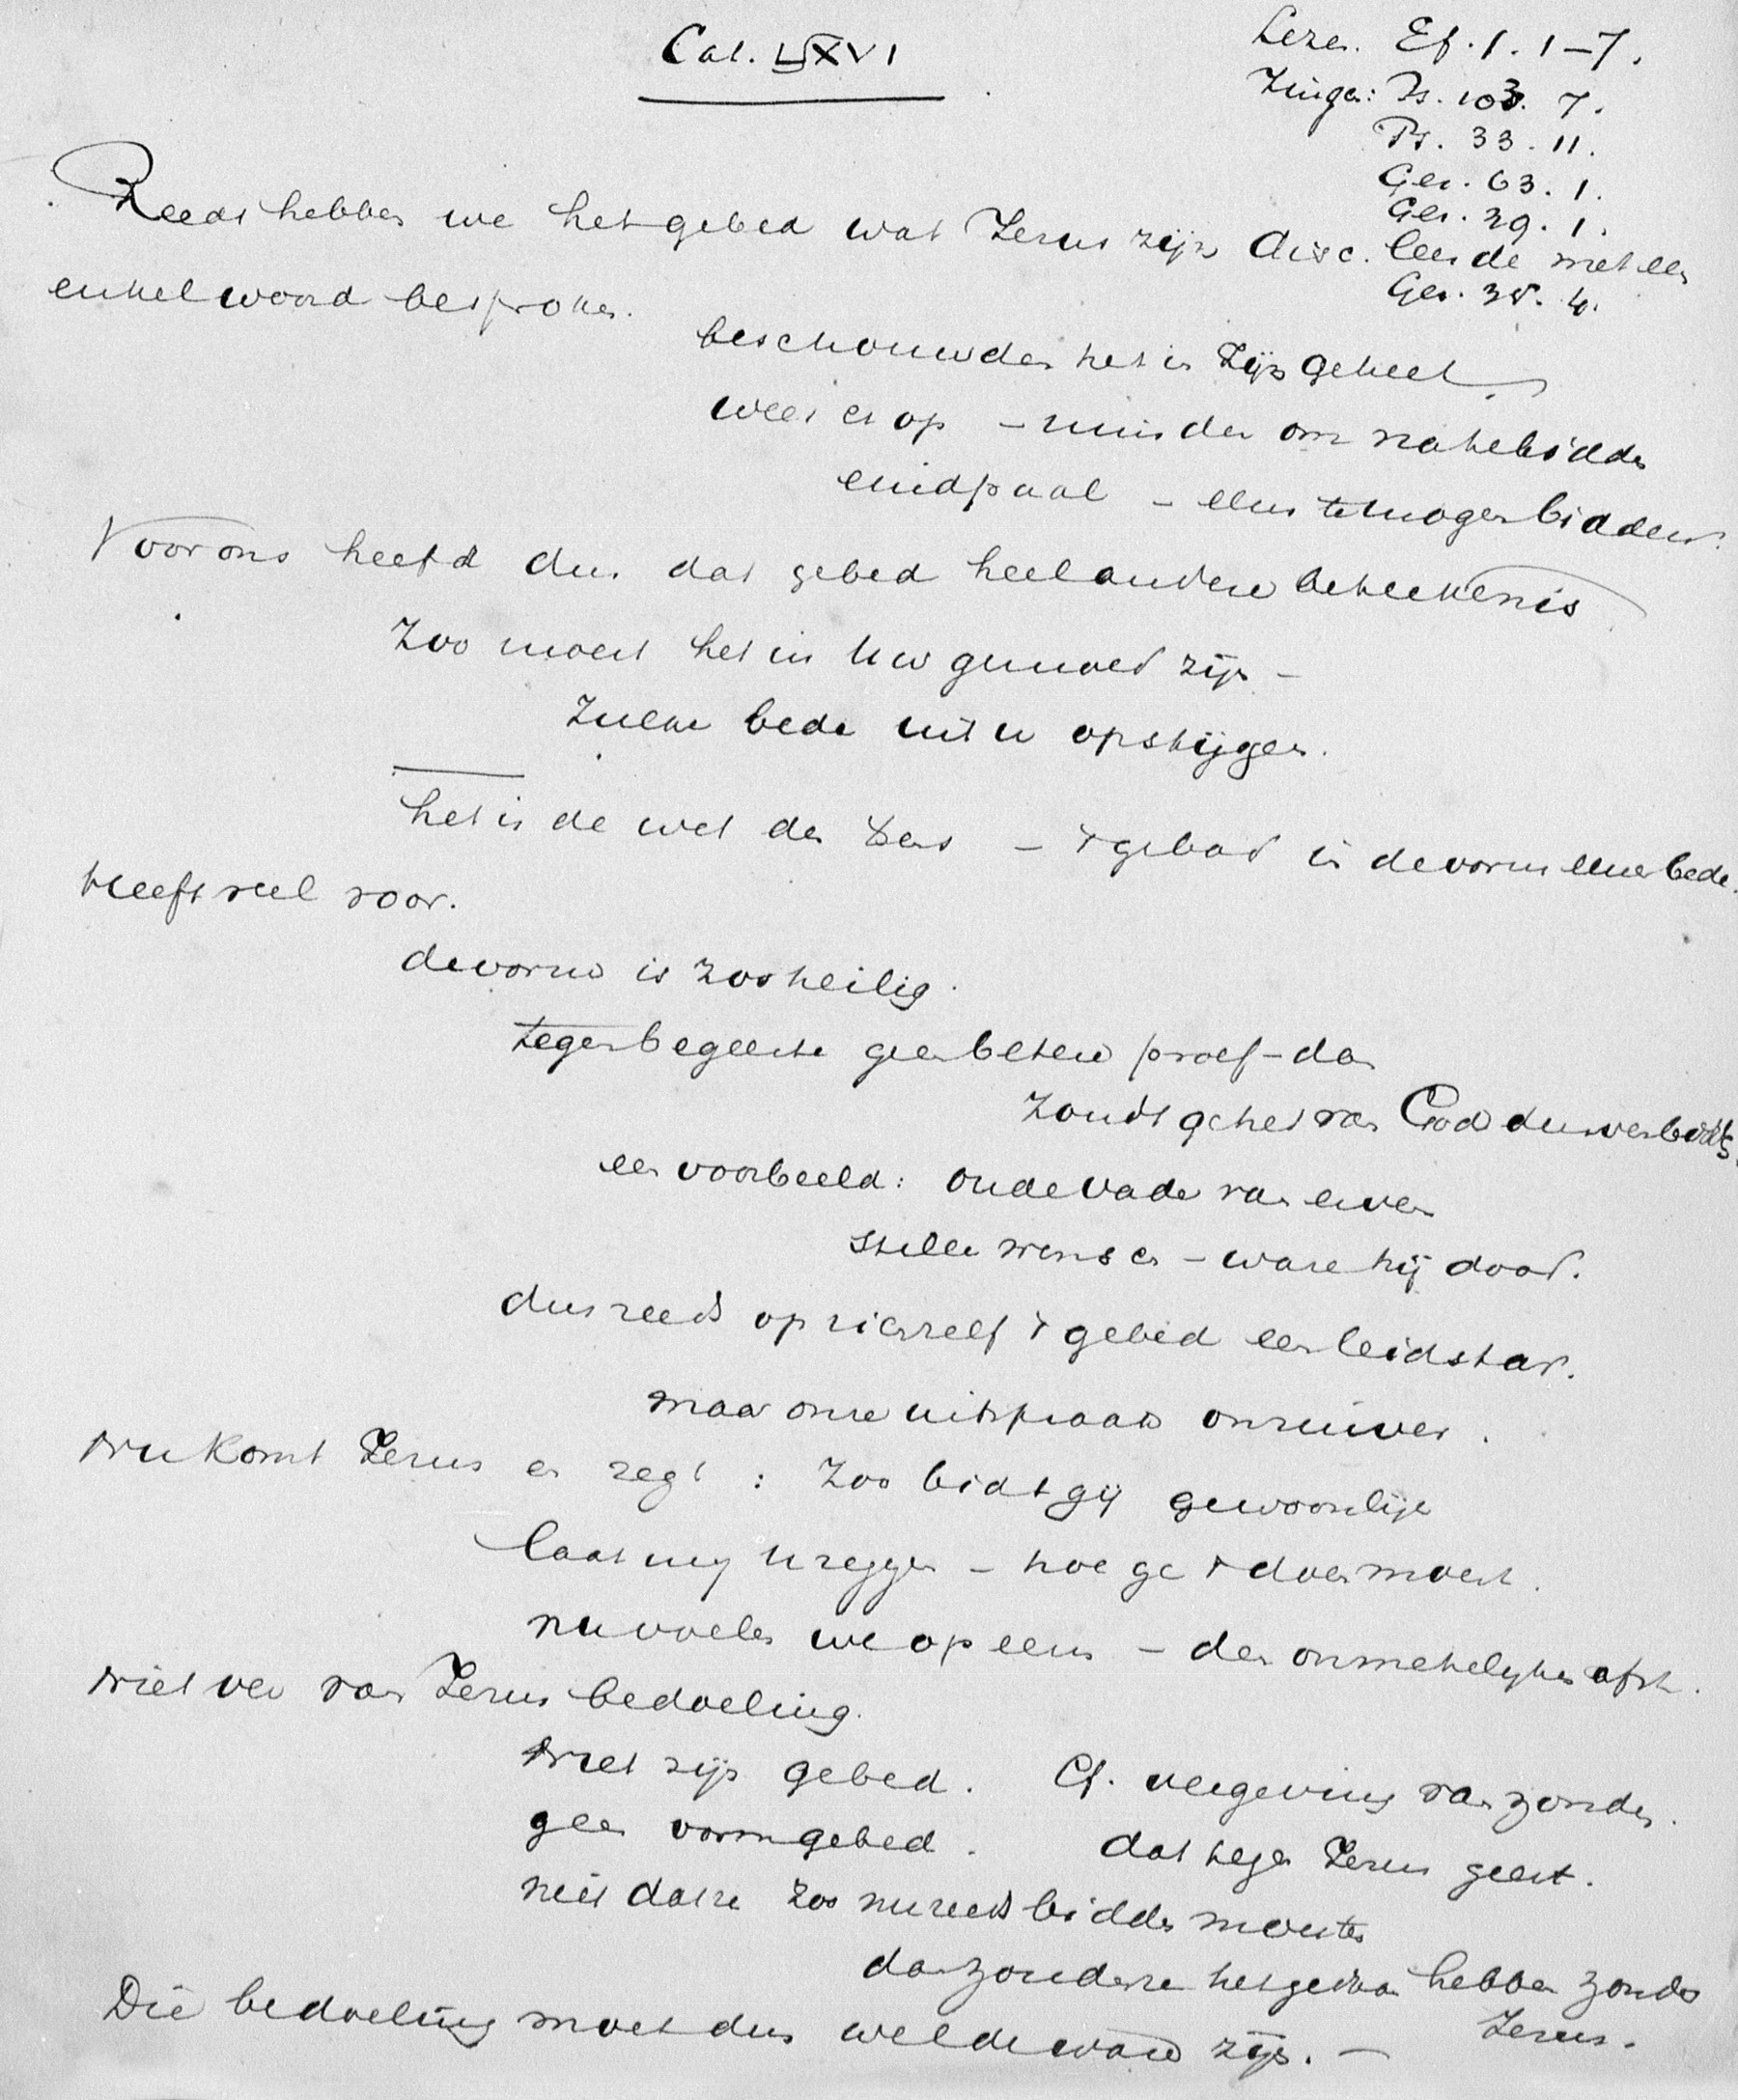 Cat. LXVI
Leze. Ef. 1. 1-7.
Zinge: Ps. 103. 7.
Ps. 33. 11.
Gez. 63. 1.
Gez. 39. 1.
Gez. 38. 4.
Reeds hebben we het gebed wat Jezus zijn disc. leerde met een
enkel woord besproken.
beschouwden het in zijn geheel
wees er op – minder om nate bidden
eindpaal – eens te mogen bidden.
Voor ons heeft dus dat gebed heel andere beteekenis
Zoo moest het in Uw gemoed zijn –
Zulke bede uit u opstijgen.
het is de wet des – 't gebod in de vorm eener bede.
Heeft veel voor.
de vorm is zoo heilig.
tegen begeerte geen betere proef – dan
zoudt ge het van God durven bidden
een voorbeeld: oude vader van
stille wensch – ware hij dood.
dus reeds op zichzelf 't gebed een leidstar.
maar onze uitspraak onzuiver.
Nu komt Jezus en zegt: Zoo bidt gij gewoonlijk
laat mij U zeggen – hoe ge 't doen moest.
nu voelen we op eens – den onmetelyken afst.
Niet ver van Jezus bedoeling.
Niet zijn gebed. Cf. vergeving van zonden.
geen vormgebed. dat tegen Jezus geest.
niet dat ze zoo nu reeds bidden moesten
dan zouden ze het gedaan hebben zonder
Jezus.
Die bedoeling moet dus wel de ware zijn. –